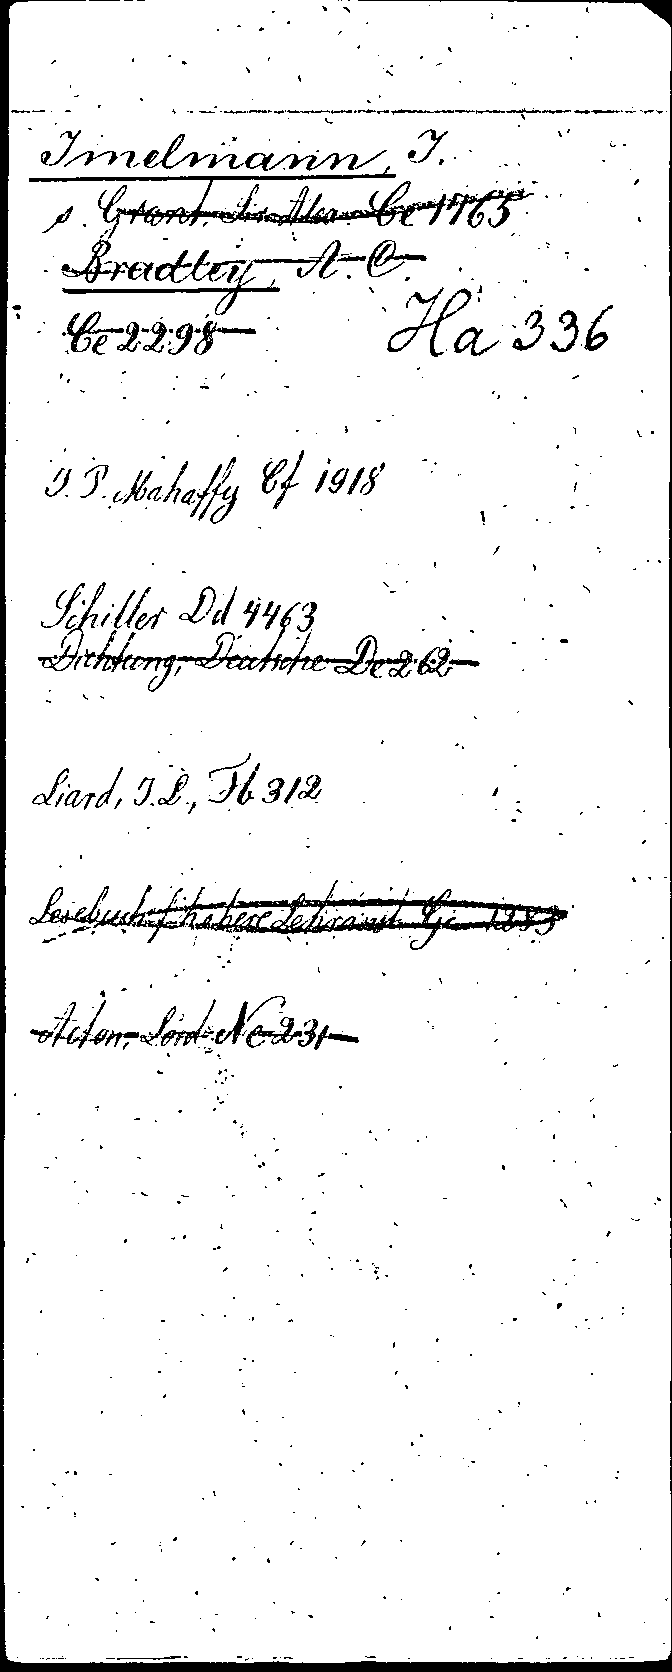 Imelmann, J.
s. Grant. Sir Alex. Ce 1765
Bradley, A. C.
Ce 2298 Ha 336
J. P. Mahaffy Cf 1918
Schiller Dd 4463
Dichtung, Deutsche De 262
Liard, J. L., Fb 312
Lesebuch f. höhere Lehranst. 1283
Acton, Lord Ne 231